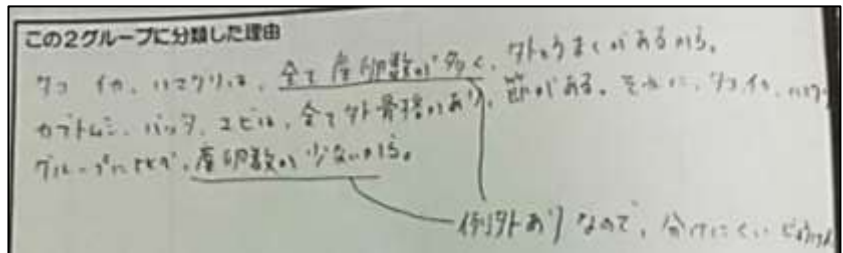 この2グループに分類した理由
タコ イカ、ハマグリは、全て産卵数が多く、外とうまくがあるから。
カブトムシ、バッタ、エビは、全て外骨格があり、節がある。それに、タコ、イカ、ハマグリ
グループに比べ、産卵数が少ないから。
例外ありなので、分けにくい